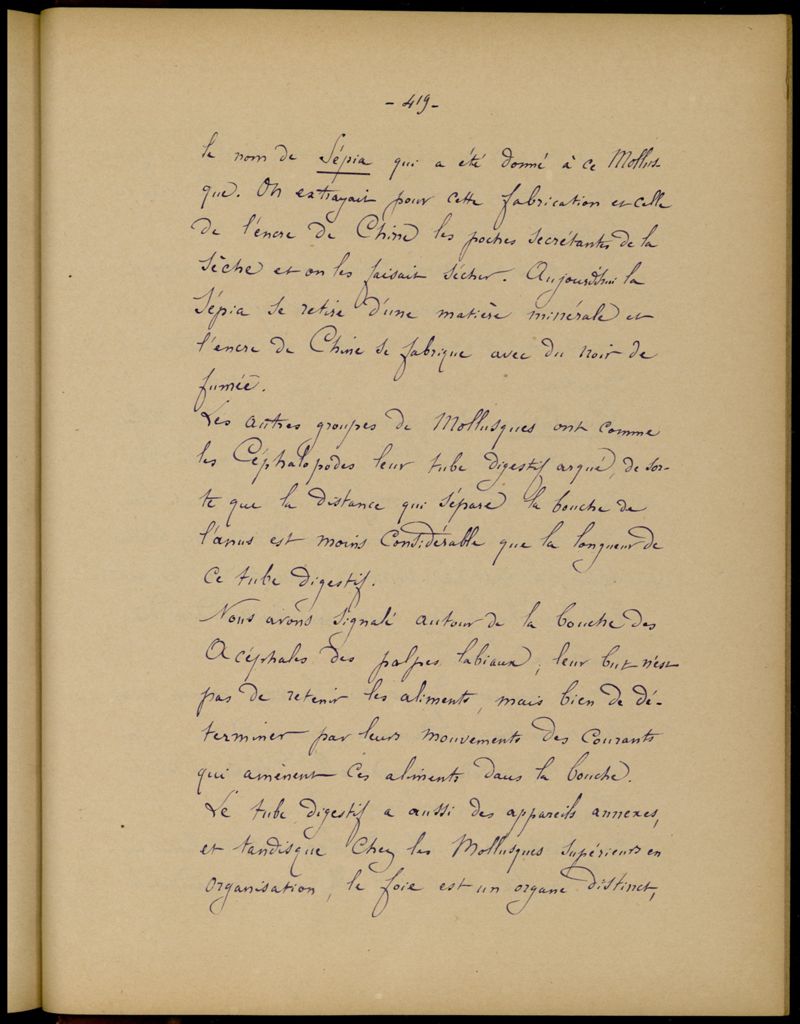 - 419 -
le nom de Sépia qui a été donné à ce Mollus-
que. On extrayait pour cette fabrication et celle
de l'encre de Chine les poches secrétantes de la
Sèche et on les faisait sécher. Aujourd'hui la
Sépia se retire d'une matière minérale et
l'encre de Chine se fabrique avec du noir de
fumée.
Les autres groupes de Mollusques ont comme
les Céphalopodes leur tube digestif arqué, de sor-
te que la distance qui sépare la bouche de
l'anus est moins considérable que la longueur de
ce tube digestif.
Nous avons signalé autour de la bouche des
Acéphales des palpes labiaux, leur but n'est
pas de retenir les aliments, mais bien de dé-
terminer par leurs mouvements des courants
qui amènent ces aliments dans la bouche.
Le tube digestif a aussi des appareils annexes,
et tandisque chez les Mollusques supérieurs en
organisation, le foie est un organe distinct,